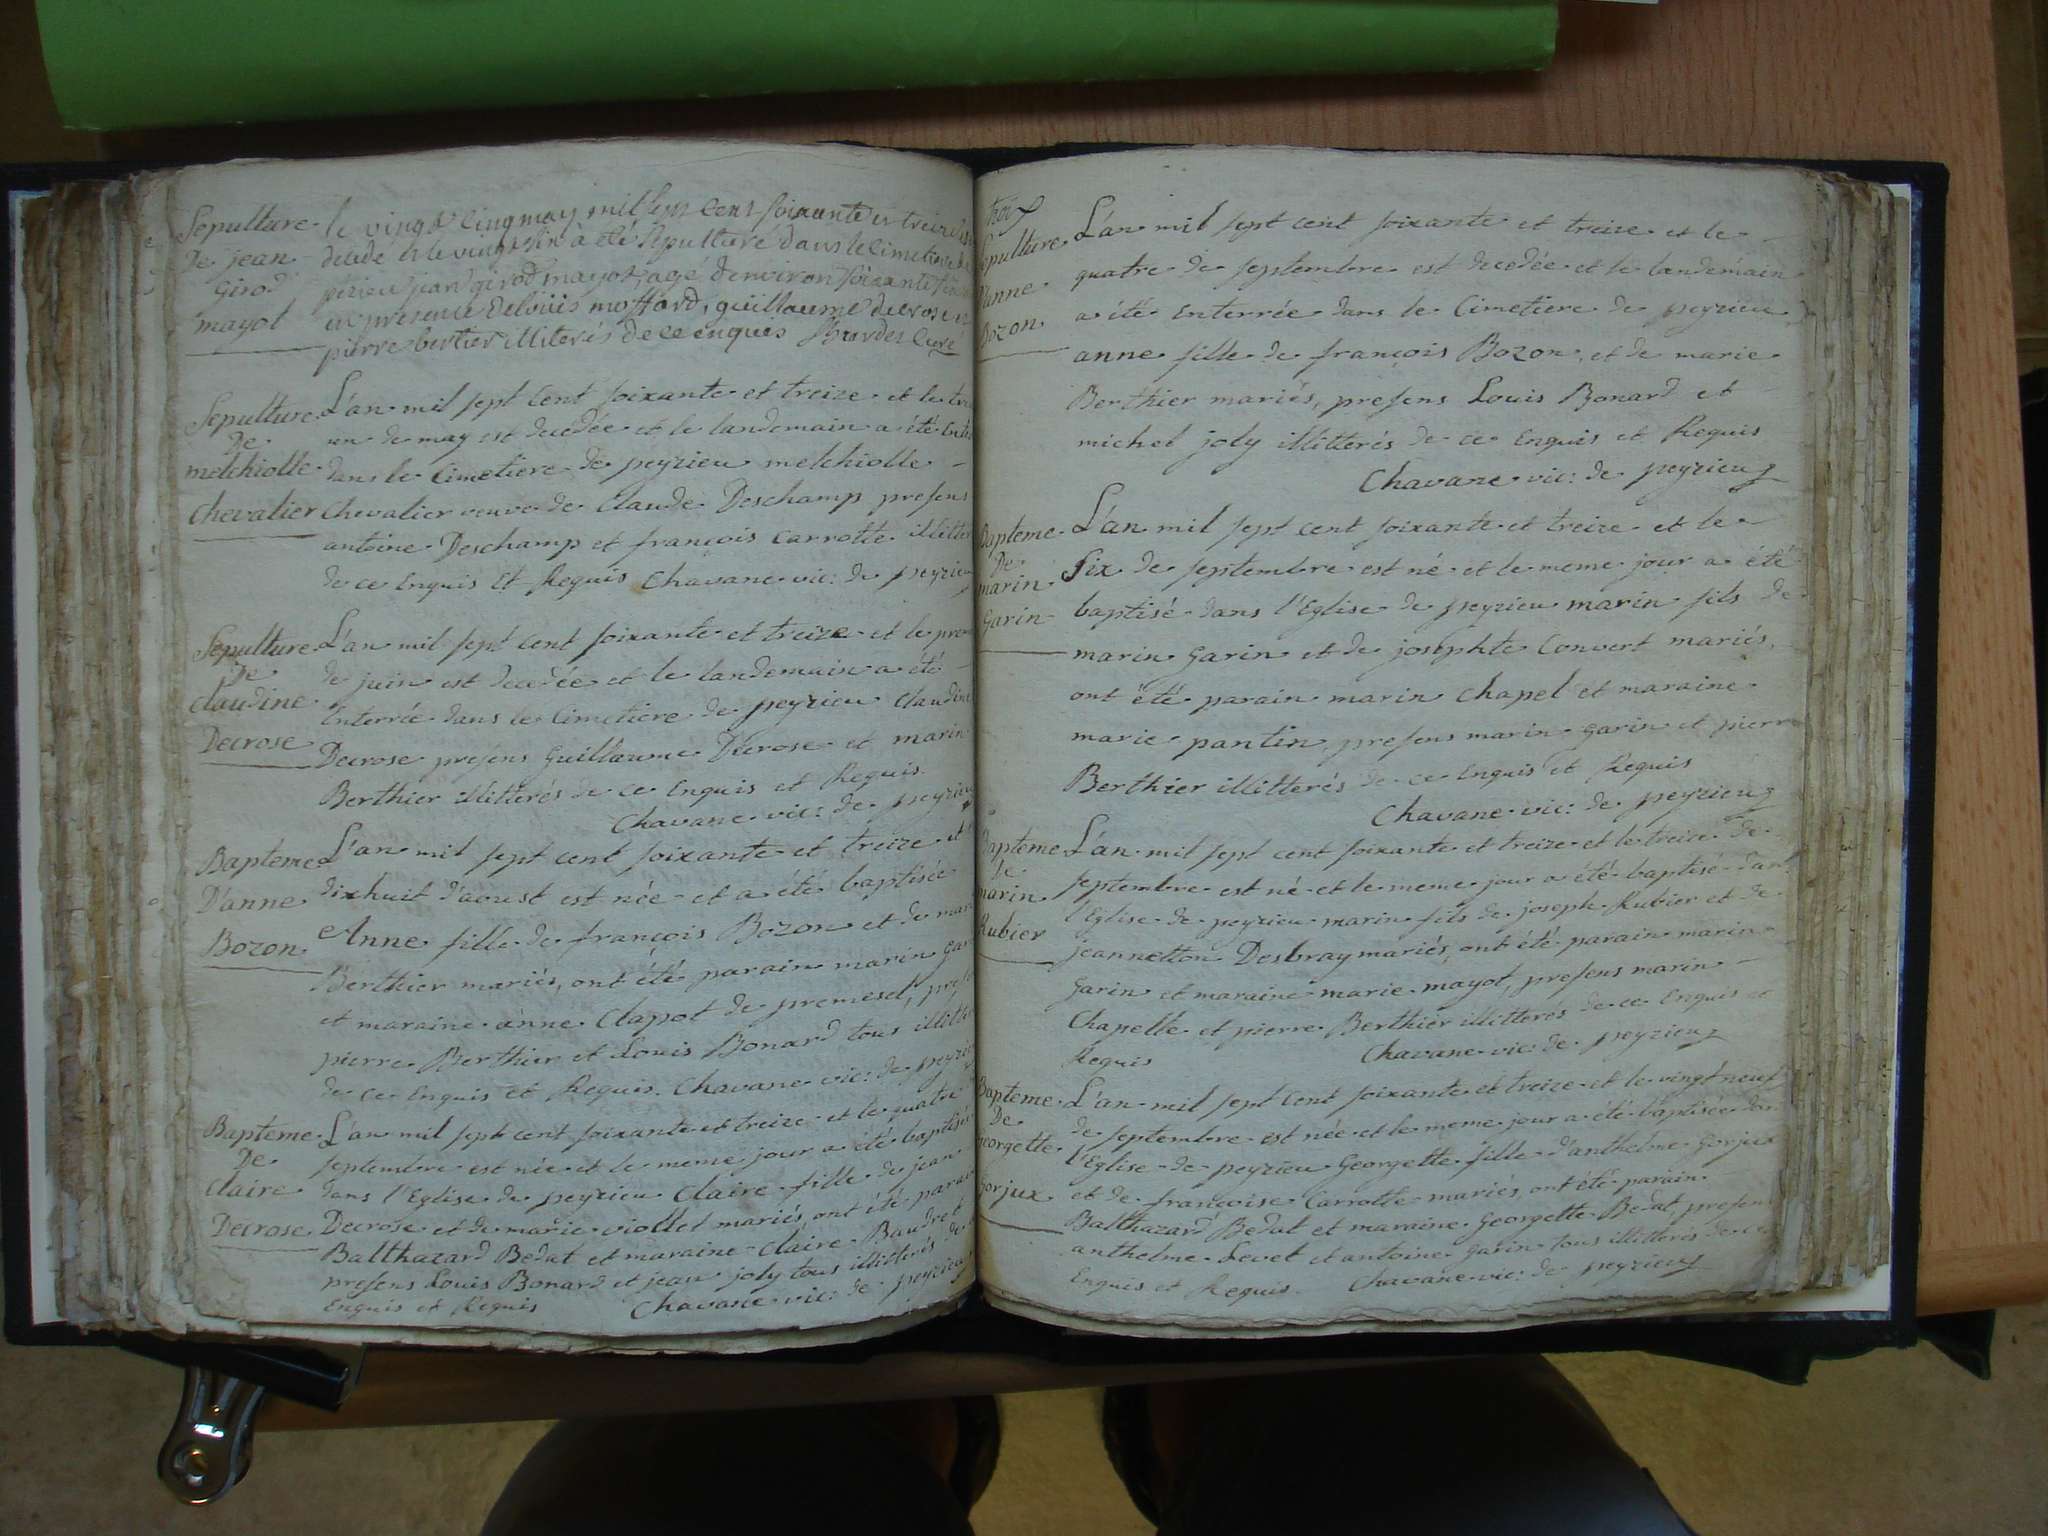 Sepulture
De jean
Girod
mayot
le vingt cinq may mil sept cent soixante et treize est
décédé et le vingt six à été sepulturé dans le cimetiere de
peirieu jean girod mayot, agé denviron soixante
en presence de louis mossard, guillaume decrose et
pierre bertier illiterés de ce enquis curé
Sepulture
De
melchiolle
Chevalier
L'an mil sept cent soixante et treize et le
un de may est decedée et le landemain a été
dans le Cimetiere de peyzieu melchiolle
Chevalier veuve de Claude Deschamp presens
antoine Deschamp et françois Carrotte
de ce Enquis et Requis Chavane vic: de peyzieu
Sepulture
De
Claudine
Decrose
L'an mil sept cent soixante et treize et le
de juin est decedée et le landemain a été
Enterrée dans le Cimetiere de peyzieu Claudine
Decrose presens Guillaume Decrose et marin
Berthier illitterés de ce Enquis et Requis
Chavane vic: de peyzieu
Baptème
D'anne
Bozon
L'an mil sept cent soixante et treize et
dixhuit d'aoust est née et a été baptisée
Anne fille de françois Bozon et de
Berthier mariés, ont été parain marin
et maraine anne Clapot de premesel,
pierre Berthier et Louis Bonard tous
de ce Enquis et Requis. Chavane vic: de peyzieu
Bapteme
De
Claire
Decrose
L'an mil sept cent soixante et treize et le quatre
septembre est née et le meme jour a été baptisée
dans l'Eglise de peyzieu Claire fille de jean
Decrose et de marie viollet mariés, ont été parain
Balthazard Bedat et maraine Claire Baudret
presens Louis Bonard et jean joly tous illitterés de
Enquis et Requis Chavane vic: de peyzieu
troix
Sepulture
D'anne
Bozon
L'an mil sept cent soixante et treize et le
quatre de septembre est decedée et le landemain
a été Enterrée dans le Cimetiere de peyzieu
anne fille de françois Bozon, et de marie
Berthier mariés, presens Louis Bonard et
michel joly illitterés de ce Enquis et Requis
Chavane vic: de peyzieu
Bapteme
De
marin
Garin
L'an mil sept cent soixante et treize et le
Six de septembre est né et le meme jour a été
baptisé dans l'Eglise de peyzieu marin fils de
marin Garin et de josephte Convert mariés,
ont été parain marin Chapel et maraine
marie pantin, presens marin Garin et pierre
Berthier illitterés de ce Enquis et Requis
Chavane vic: de peyzieu
Bapteme
de
marin
Rubier
L'an mil sept cent soixante et treize et le treize de
septembre est né et le meme jour a été baptisé dans
l'Eglise de peyzieu marin fils de joseph Rubier et de
jeannetton Desbray mariés, ont été parain marin
Garin et maraine marie mayot, presens marin
Chapelle et pierre Berthier illitterés de ce Enquis et
Requis Chavane vic: de peyzieu
Bapteme
De
Georgette
Gorjux
L'an mil sept Cent soixante et treize et le vingt neuf
de septembre est née et le meme jour a été baptisée dans
l'Eglise de peyzieu Georgette fille d'anthelme Gorjux
et de françoise Carrotte mariés, ont été parain
Balthazard Bedat et maraine Georgette Bedat, presens
anthelme Levet et antoine Garin tous illitterés de ce
Enquis et Requis. Chavane vic: de peyzieu